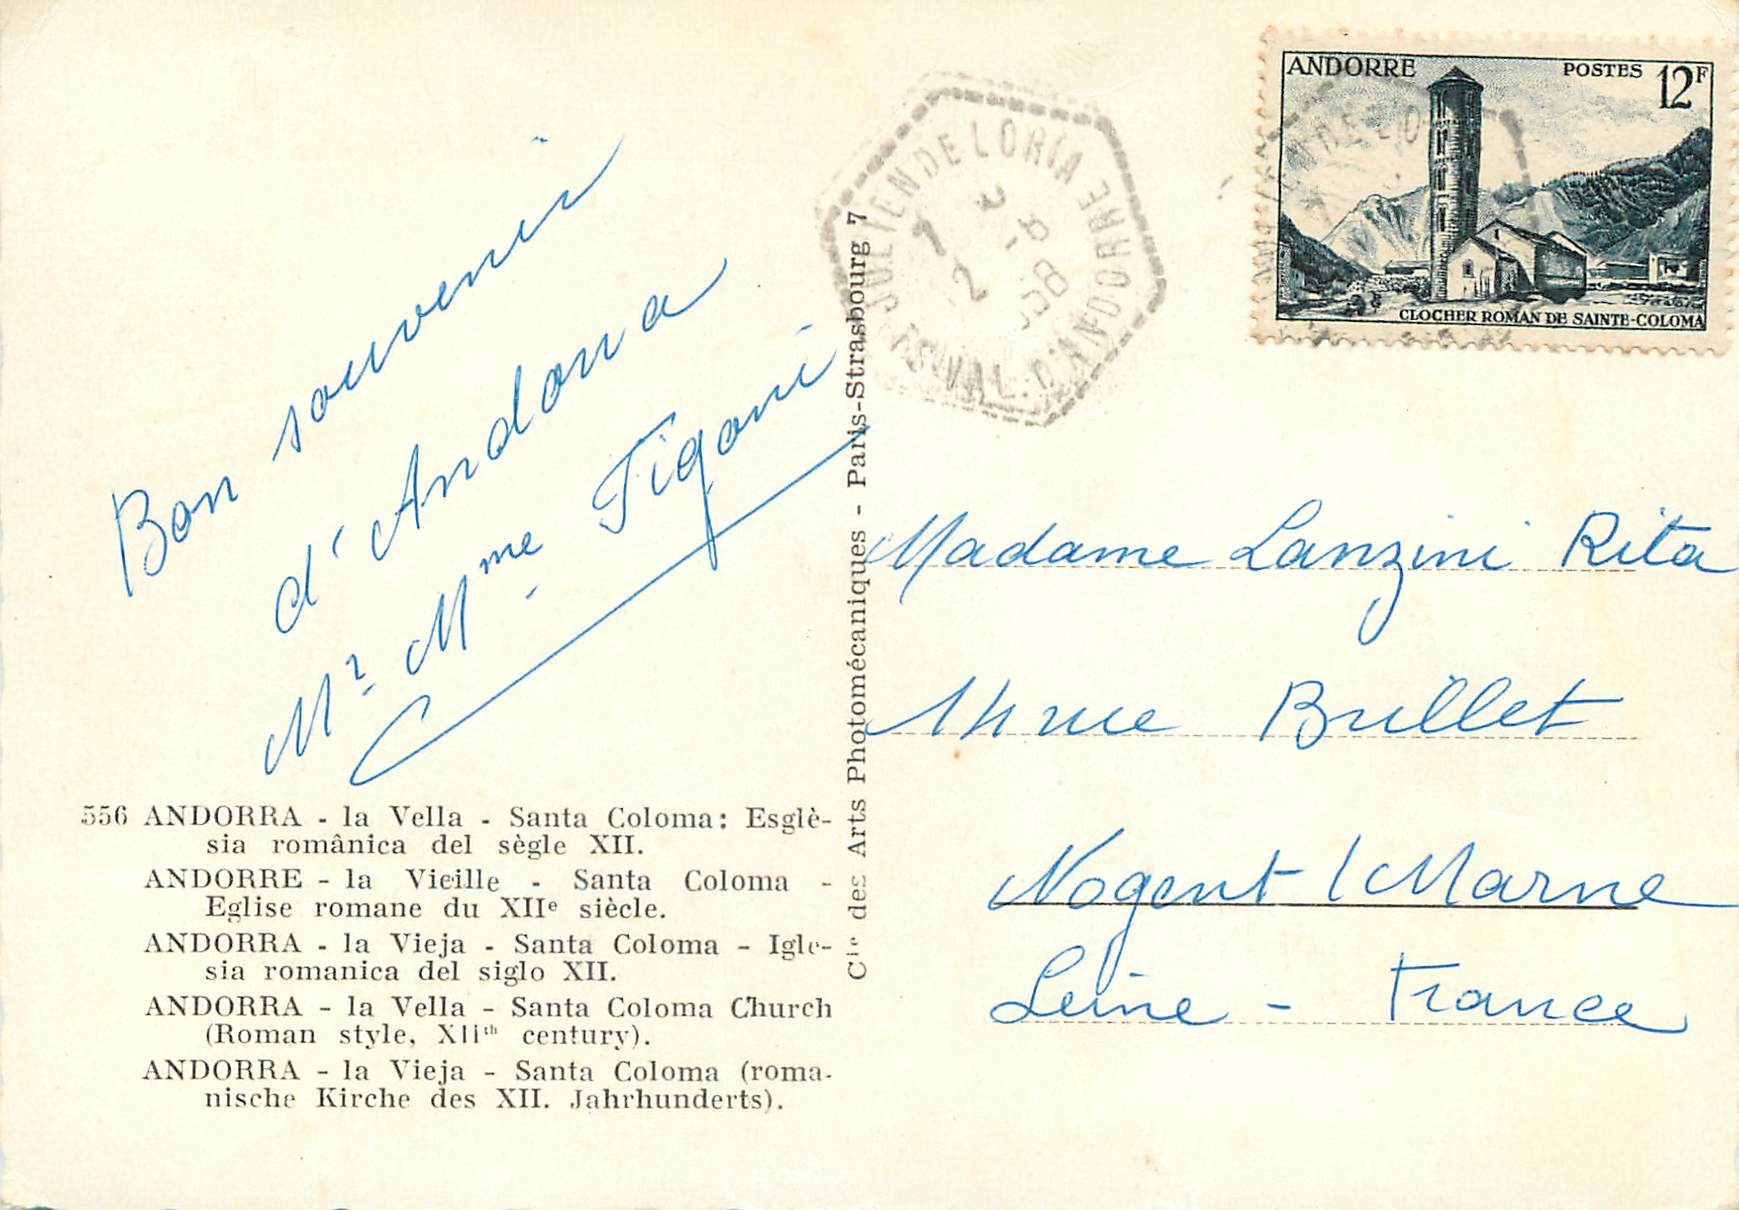 ANDORRE POSTES 12F
CLOCHER ROMAN DE SAINTE-COLOMA
VAL. D'ANDORRE
Bon souvenir
d'Andorra
Mr Mme Figoni
556 ANDORRA - la Vella - Santa Coloma: Esglè-
sia românica del sègle XII.
ANDORRE - la Vieille - Santa Coloma -
Eglise romane du XIIe siècle.
ANDORRA - la Vieja - Santa Coloma - Igle-
sia romanica del siglo XII.
ANDORRA - la Vella - Santa Coloma Church
(Roman style, XIIth century).
ANDORRA - la Vieja - Santa Coloma (roma-
nische Kirche des XII. Jahrhunderts).
Cie des Arts Photomécaniques - Paris-Strasbourg 7
Madame Lanzini Rita
14 rue Brillet
Nogent / Marne
Seine - France